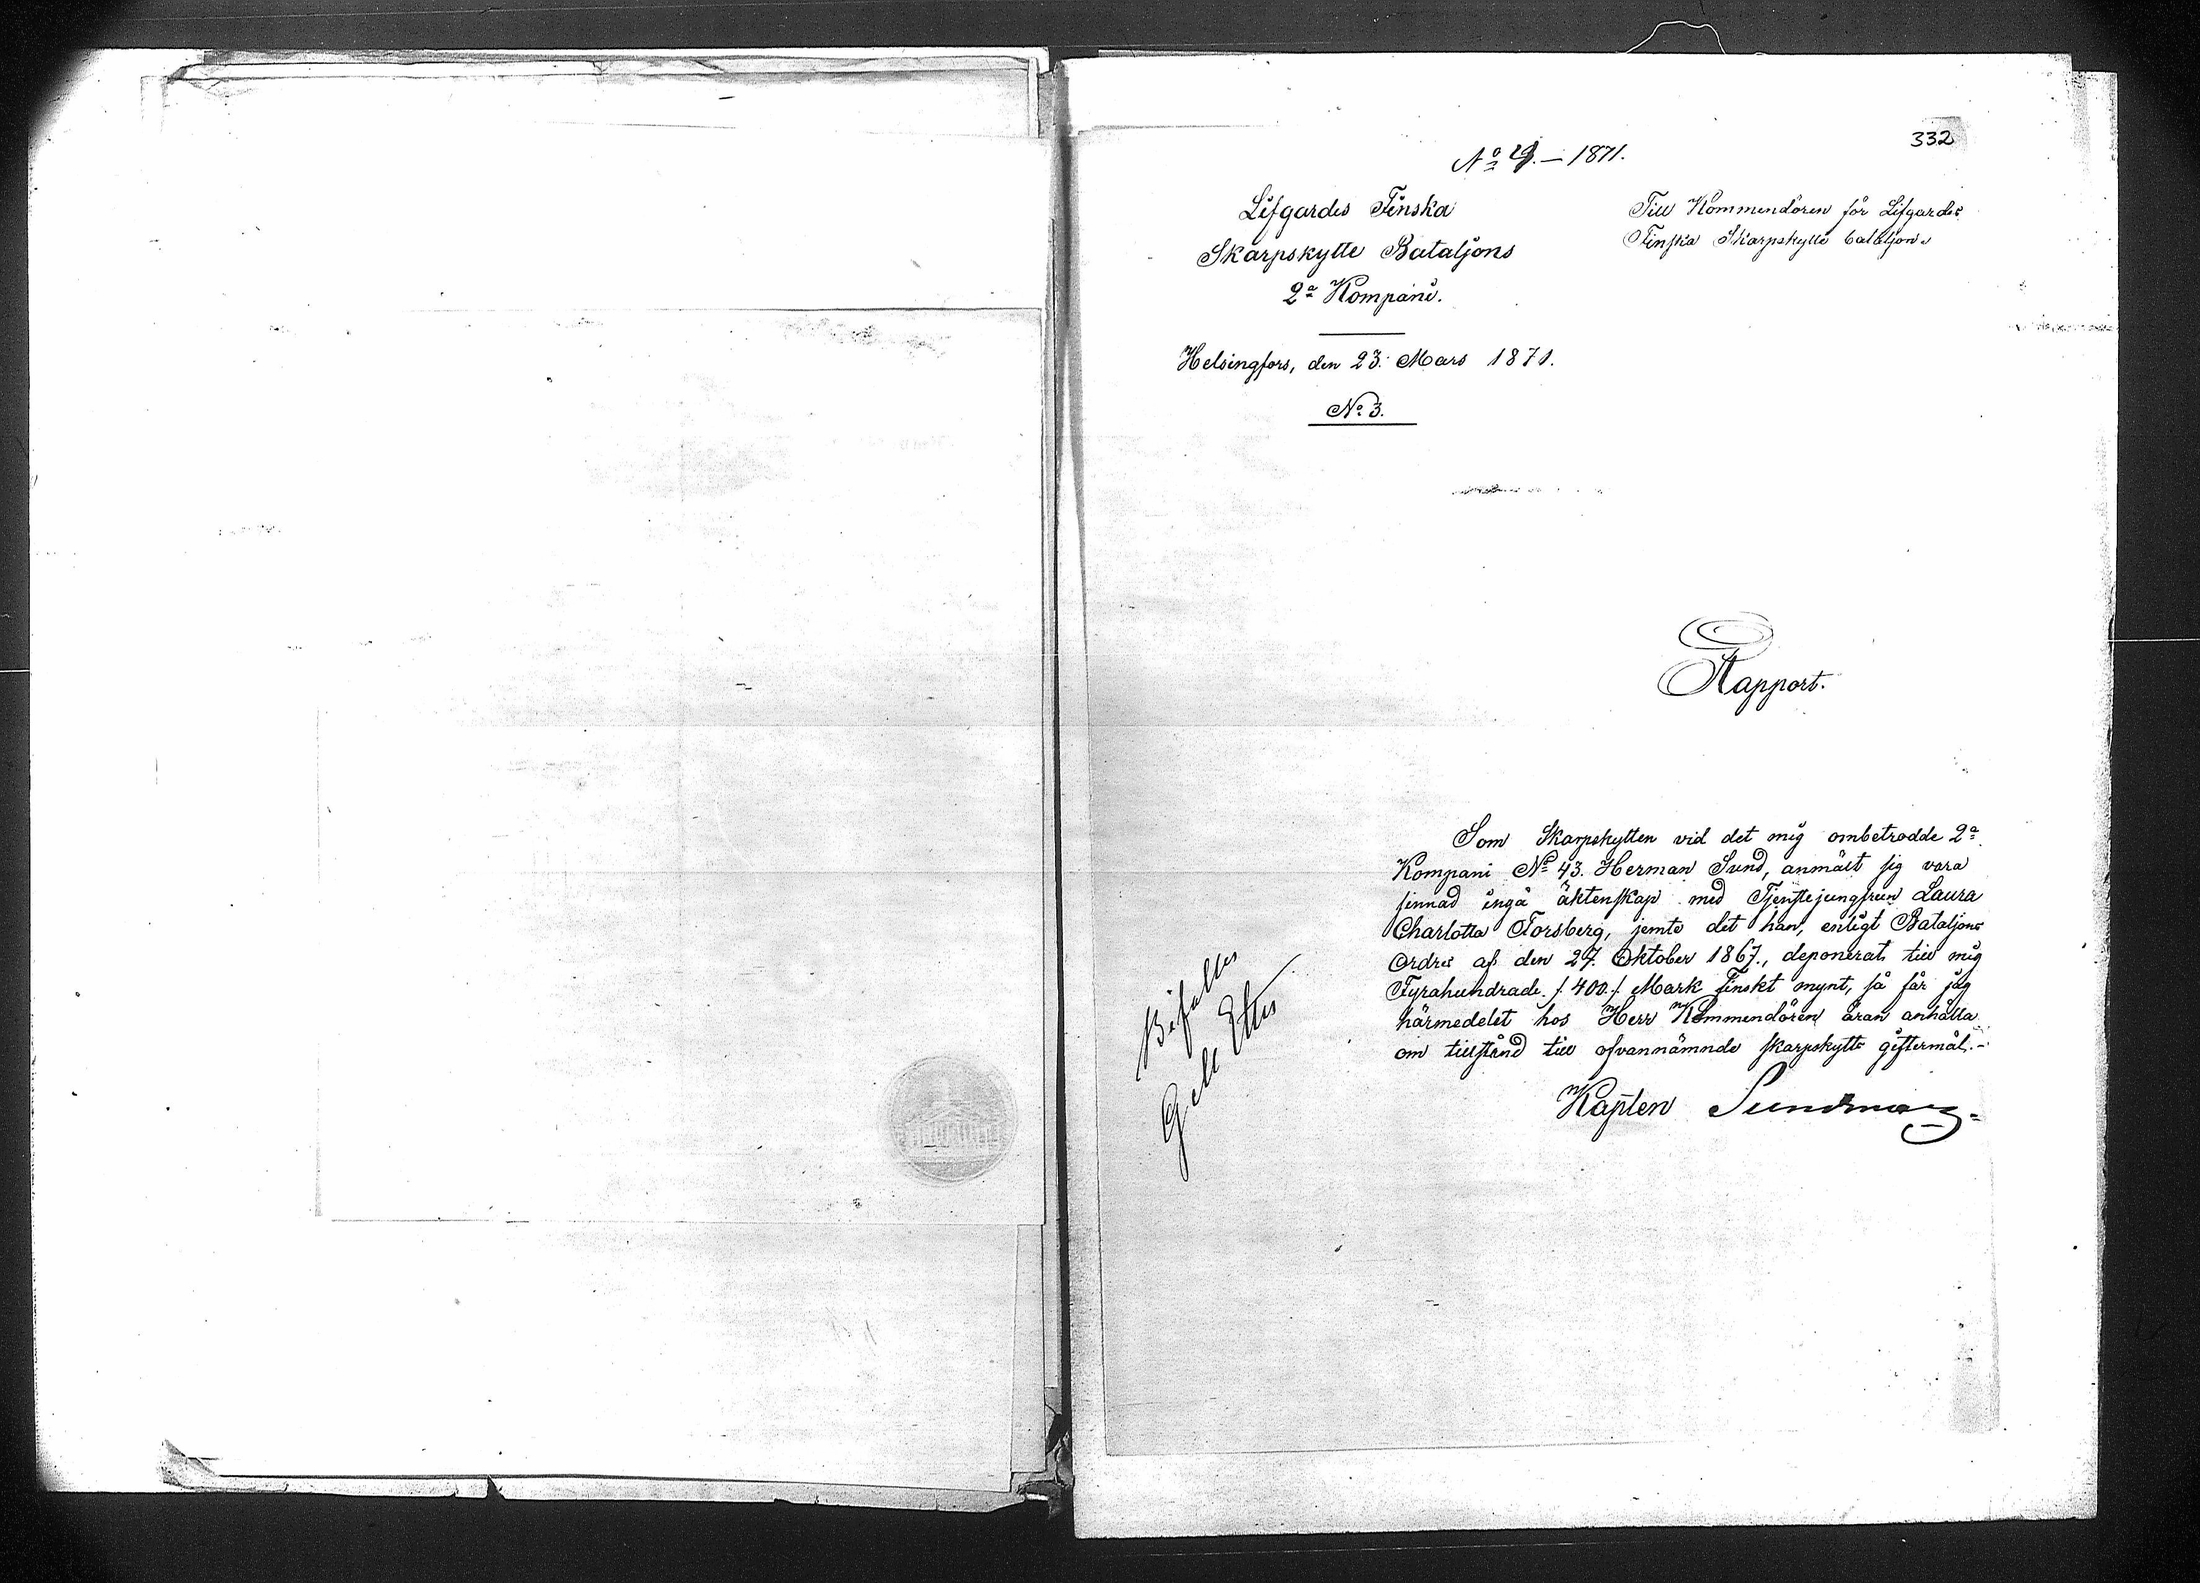 332
No 9. — 1871.
Lifgardes Finska
Skarpskytte Bataljons
2a Kompani.
Helsingfors, den 23. Mars 1871.
No 3.
Till Kommendören för Lifgardes
Finska Skarpskytte bataljon.
Rapport.
Som Skarpskytten vid det mig ombetrodde 2a
Kompani No 43. Herman Sund, anmält sig vara
sinnad ingå äktenskap med Tjenstejungfrun Laura
Charlotta Forsberg, jemte det han, enligt Bataljons
Ordres af den 27. Oktober 1867., deponerat till mig
Fyrahundrade /400./ Mark finskt mynt, så får jag
härmedelst hos Herr Kommendören äran anhålla
om tillstånd till ofvannämnde skarpskytts giftermål.-
Kapten Sundman
Bifalles